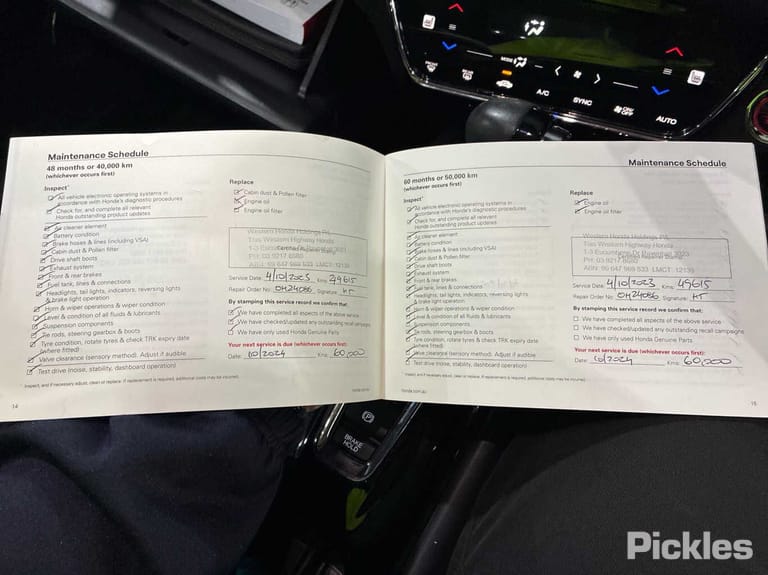 MODE
A/C
SYNC
ON/OFF
AUTO
Maintenance Schedule
48 months or 40,000 km
(whichever occurs first)
Inspect*
All vehicle electronic operating systems in
accordance with Honda's diagnostic procedures
Check for, and complete all relevant
Honda outstanding product updates
Air cleaner element
Battery condition
Brake hoses & lines (including VSA)
Cabin dust & Pollen filter
Drive shaft boots
Exhaust system
Front & rear brakes
Fuel tank, lines & connections
Headlights, tail lights, indicators, reversing lights
& brake light operation
Horn & wiper operations & wiper condition
Level & condition of all fluids & lubricants
Suspension components
Tie rods, steering gearbox & boots
Tyre condition, rotate tyres & check TRK expiry date
(where fitted)
Valve clearance (sensory method). Adjust if audible
Test drive (noise, stability, dashboard operation)
* Inspect, and if necessary adjust, clean or replace. If replacement is required, additional costs may be incurred.
14
Replace
Cabin dust & Pollen filter
Engine oil
Engine oil filter
Western Honda Holdings P/L
T/as Western Highway Honda
PH: 03 9217 6580
ABN: 69 647 969 533 LMCT: 12135
Service Date: 4/10/2023 Kms: 49615
Repair Order No: OH24086 Signature: KT
By stamping this service record we confirm that:
We have completed all aspects of the above service
We have checked/updated any outstanding recall campaigns
We have only used Honda Genuine Parts
Your next service is due (whichever occurs first):
Date: 10/2024 Kms: 60,000
Maintenance Schedule
60 months or 50,000 km
(whichever occurs first)
Inspect*
All vehicle electronic operating systems in
accordance with Honda's diagnostic procedures
Check for, and complete all relevant
Honda outstanding product updates
Air cleaner element
Battery condition
Brake hoses & lines (including VSA)
Cabin dust & Pollen filter
Drive shaft boots
Exhaust system
Front & rear brakes
Fuel tank, lines & connections
Headlights, tail lights, indicators, reversing lights
& brake light operation
Horn & wiper operations & wiper condition
Level & condition of all fluids & lubricants
Suspension components
Tie rods, steering gearbox & boots
Tyre condition, rotate tyres & check TRK expiry date
(where fitted)
Valve clearance (sensory method). Adjust if audible
Test drive (noise, stability, dashboard operation)
* Inspect, and if necessary adjust, clean or replace. If replacement is required, additional costs may be incurred.
honda.com.au
Replace
Engine oil
Engine oil filter
Western Honda Holdings P/L
T/as Western Highway Honda
PH: 03 9217 6580
ABN: 69 647 969 533 LMCT: 12135
Service Date: 4/10/2023 Kms: 49615
Repair Order No: OH24086 Signature: KT
By stamping this service record we confirm that:
We have completed all aspects of the above service
We have checked/updated any outstanding recall campaigns
We have only used Honda Genuine Parts
Your next service is due (whichever occurs first):
Date: 10/2024 Kms: 60,000
15
BRAKE
HOLD
Pickles